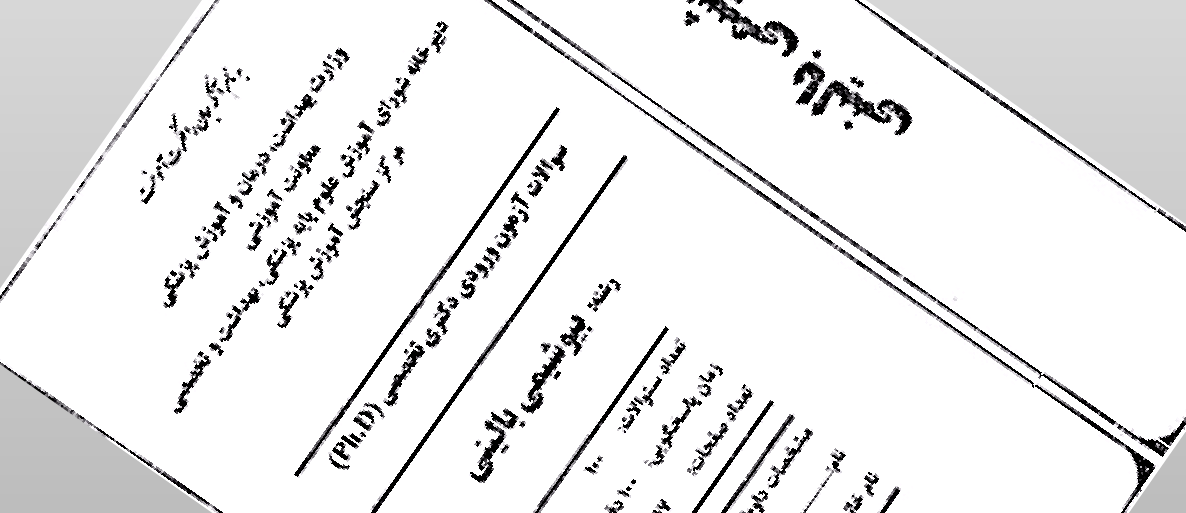 وزارت بهداشت، درمان و آموزش پزشکی
معاونت آموزشی
دبیرخانه شورای آموزش علوم پایه پزشکی، بهداشت و تخصصی
مرکز سنجش آموزش پزشکی
سوالات آزمون ورودی دکتری تخصصی (Ph.D)
رشته: بیوشیمی بالینی
تعداد سئوالات: ۱۰۰
زمان پاسخگویی: ۱۰۰
تعداد صفحات:
مشخصات
نام:
نام
بالینی